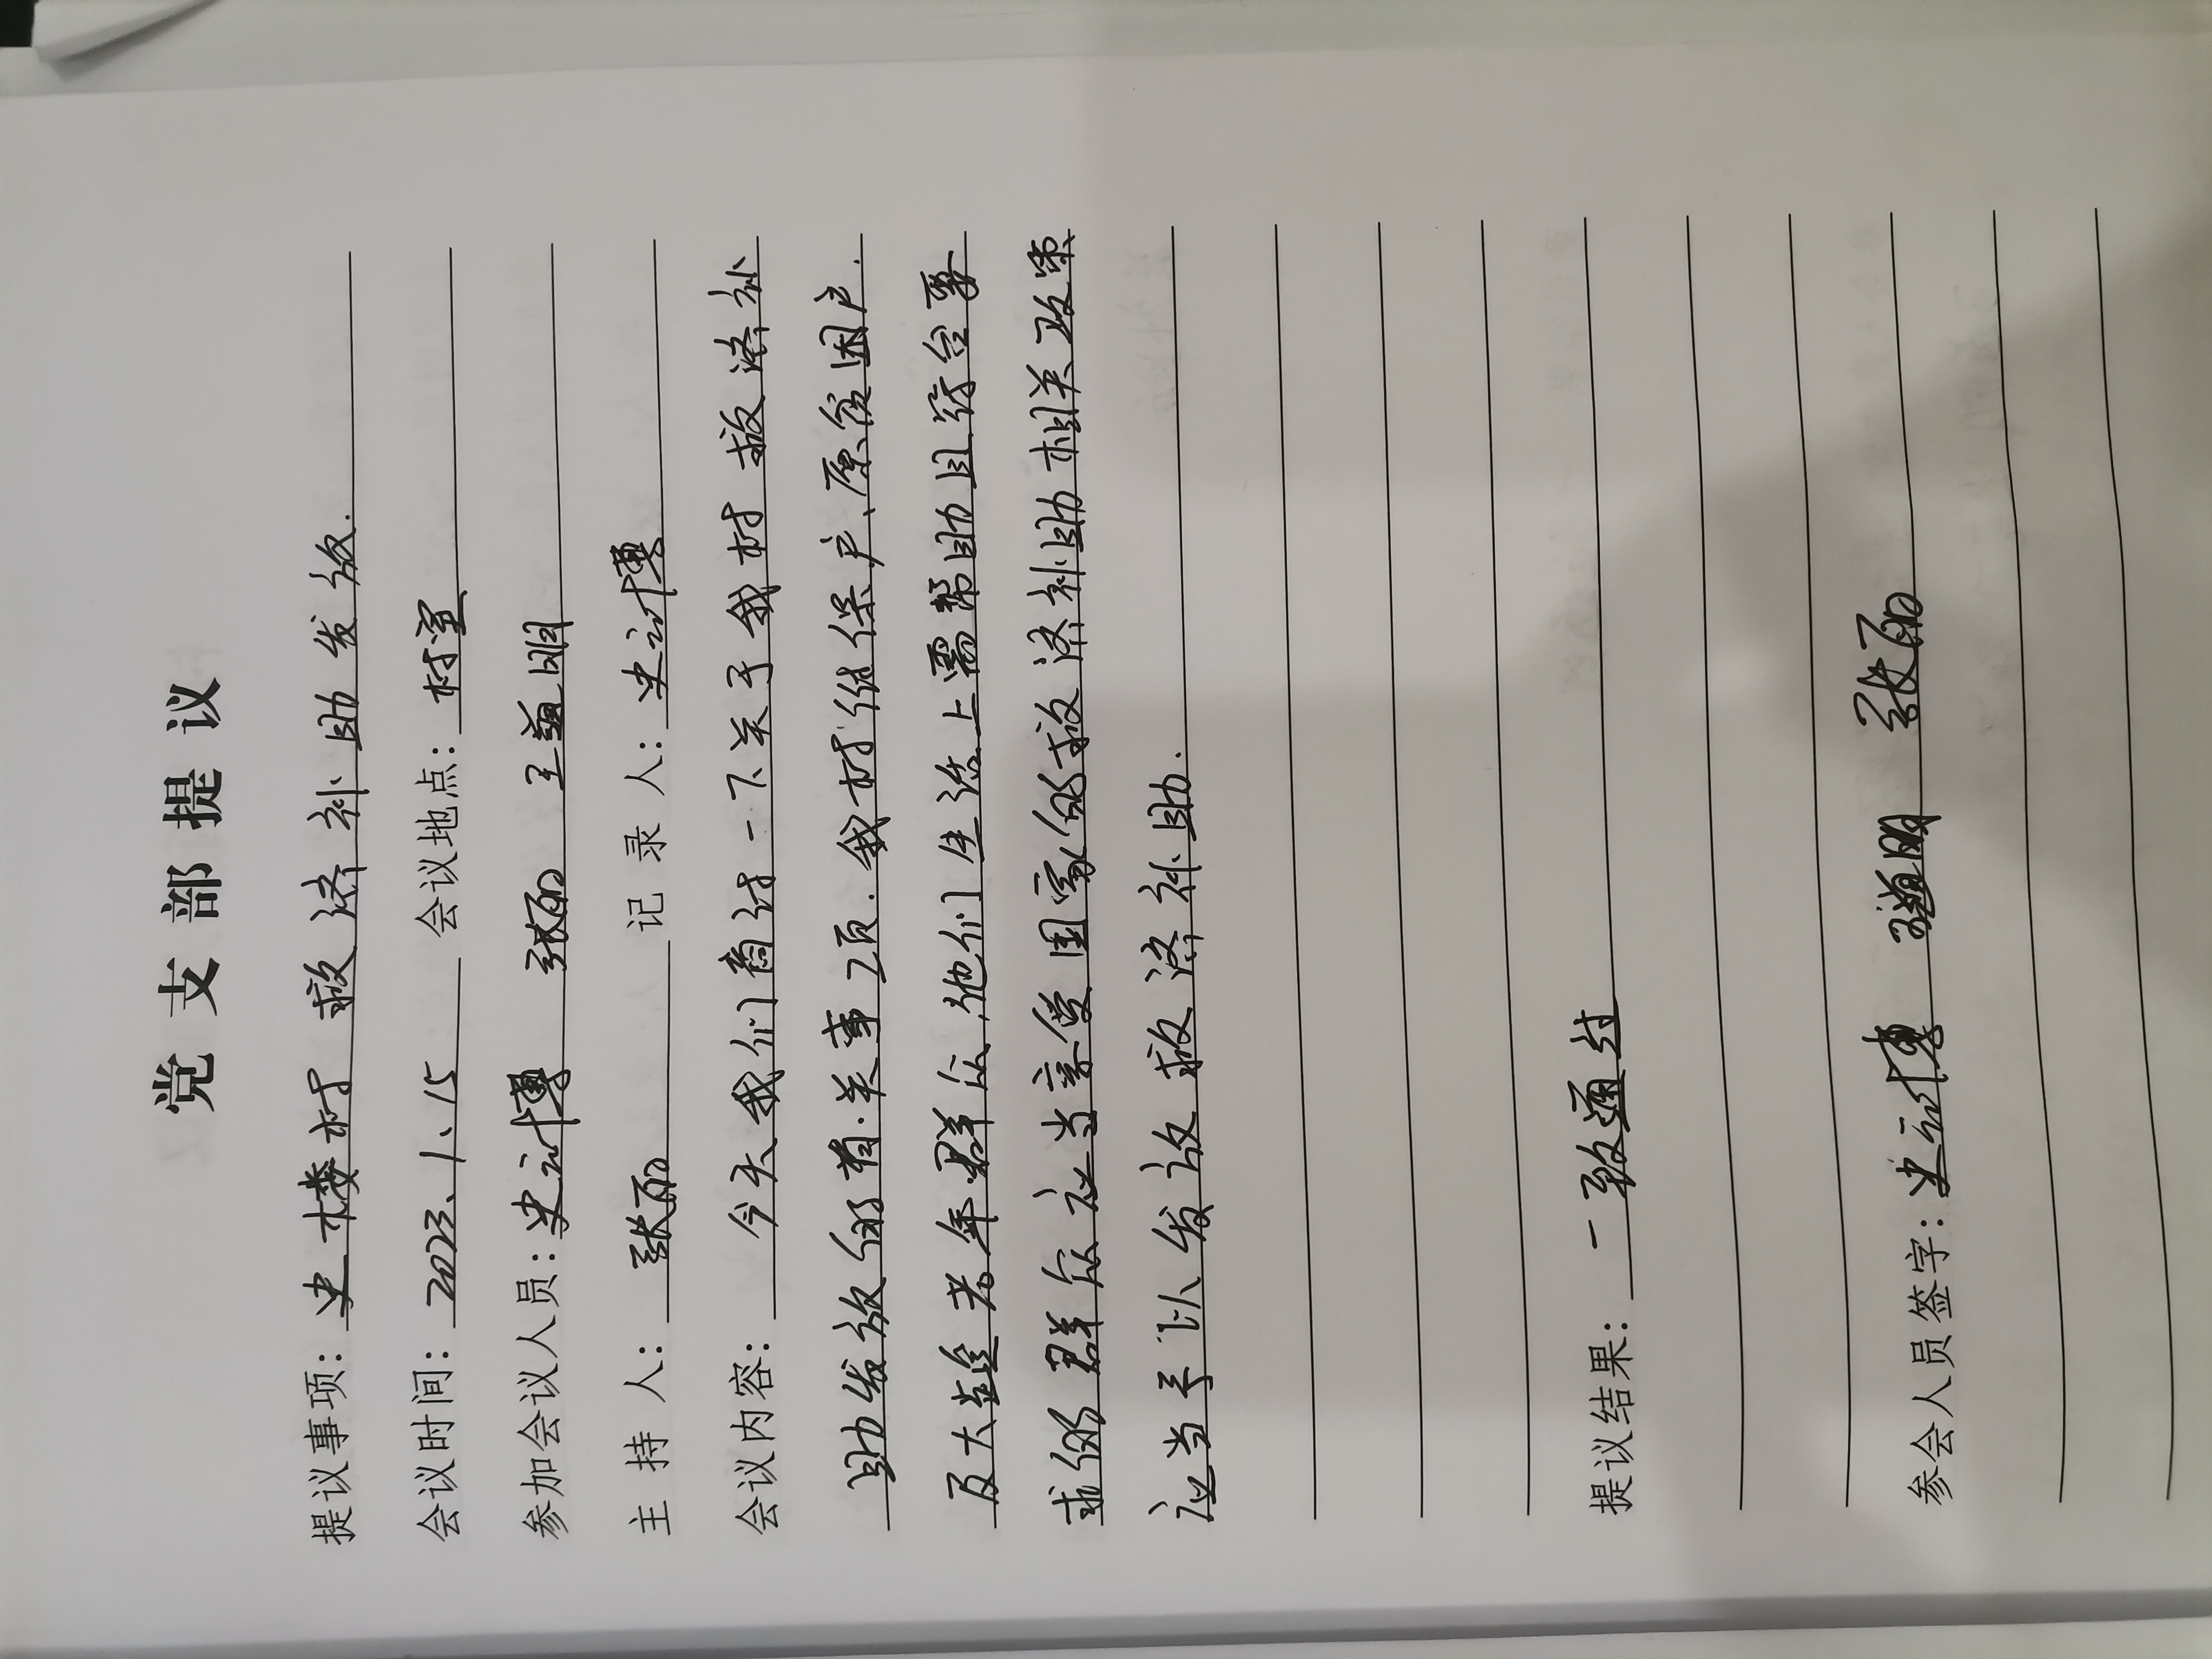 党支部提议
提议事项：史楼村救济补助发放.
会议时间：2023、1、15 会议地点：村室
参加会议人员：史云博 张丽 王道明
主持人：张丽 记录人：史云博
会议内容：今天我们商讨一下关于我村救济补
助发放的有关事项.我村低保户、原贫困户.
及大龄老年群众，他们生活上需帮助且符合要
求的群众应当享受国家的救济补助相关政策
应当予以发放救济补助.
提议结果：一致通过
参会人员签字：史云博 王道明 张丽